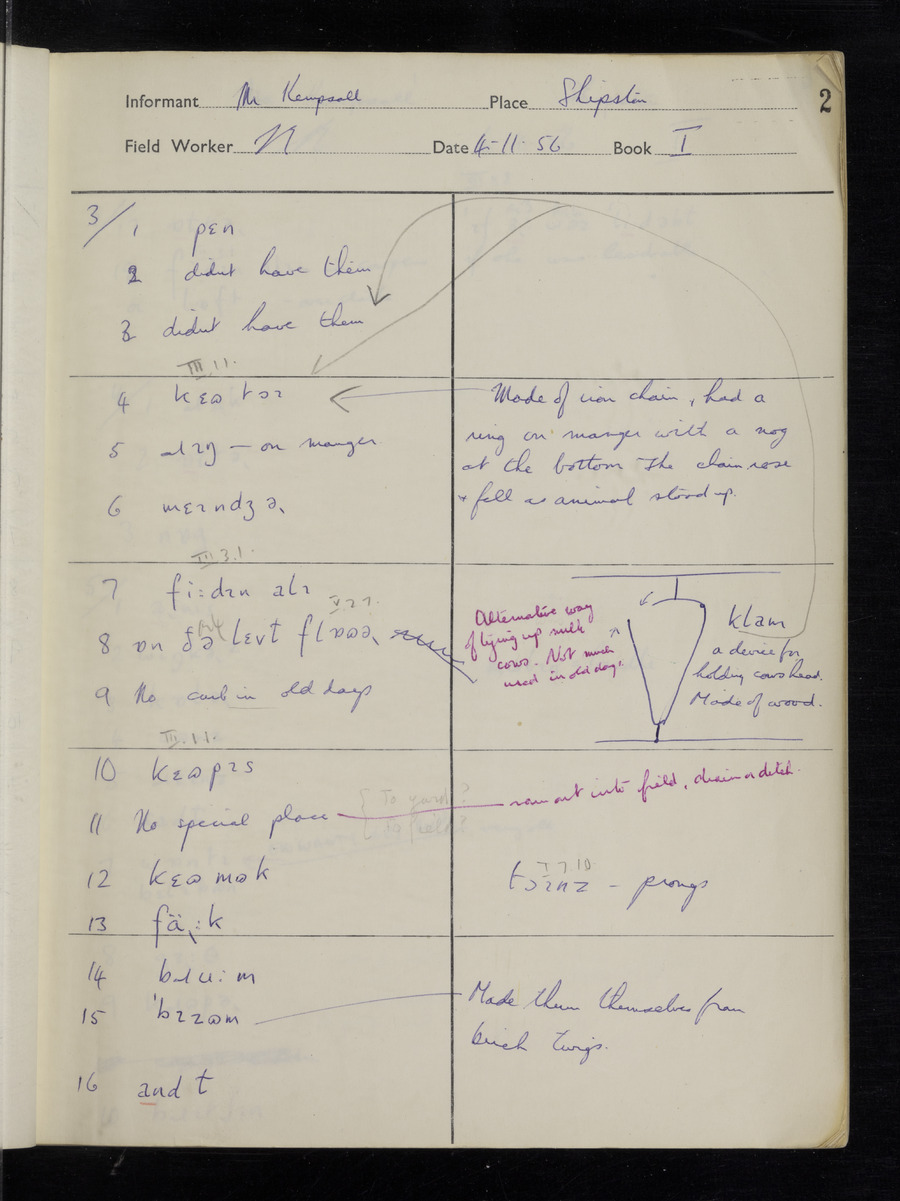 2
Informant Mr Kempsall Place Shipston
Field Worker N Date 4-11-56 Book I
3/1 pɛn
2 didnt have them
3 didnt have them
III.11.
4 kɛɷ tɔɪ
5 — on manger
6 mɛɪndʒə
III 3.1.
7 fiːdɪn alɪ
V 2 7.
8 ɒn ðə lɛvt flɒɷə
9 No curb in old days
III.11.
10 kɛɷpɪs
11 No special place
To yard?
To field?
12 kɛɷ mɷk
13 fä:k
14
15
16 and t
Made of iron chain, had a
ring on manger with a nog
at the bottom The chain rose
& fell as animal stood up.
Alternative way
of tying up milk
cows. Not much
used in old days.
klam
a device for
holding cows head.
Made of wood.
ran out into field, drain or ditch.
I 7 10.
– prongs
Made them themselves from
birch twigs.